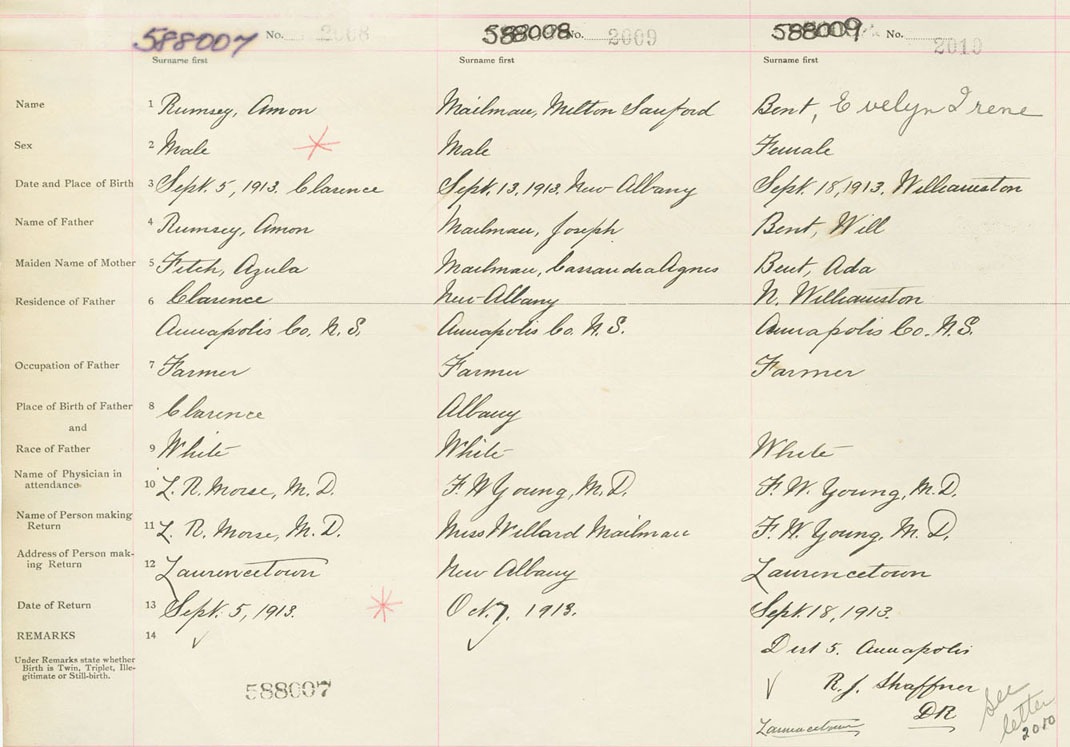 588007 No. 2008 588008 No. 2009 588009 No. 2010
Surname first Surname first Surname first
Name 1 Rumsey, Amon Mailman, Milton Sanford Bent, Evelyn Irene
Sex 2 Male Male Female
Date and Place of Birth 3 Sept. 5, 1913. Clarence Sept. 13, 1913, New Albany Sept 18, 1913, Williamston
Name of Father 4 Rumsey, Amon Mailman, Joseph Bent, Will
Maiden Name of Mother 5 Fitch, Azula Mailman, Cassandra Agnes Bent, Ada
Residence of Father 6 Clarence New Albany N. Williamston
Annapolis Co. N.S. Annapolis Co. N.S. Annapolis Co. N.S.
Occupation of Father 7 Farmer Farmer Farmer
Place of Birth of Father 8 Clarence Albany
and
Race of Father 9 White White White
Name of Physician in
attendance 10 L. R. Morse, M.D. F. W Young, M.D. F. W. Young, M.D.
Name of Person making
Return 11 L. R. Morse, M.D. Miss Willard Mailman F. W. Young, M.D.
Address of Person mak-
ing Return 12 Laurencetown New Albany Laurencetown
Date of Return 13 Sept. 5, 1913. Oct. 7, 1913. Sept. 18, 1913.
REMARKS 14
Under Remarks state whether
Birth is Twin, Triplet, Ille-
gitimate or Still-birth.
Dist 5. Annapolis
588007 R. J. Shaffner
DR
Laurencetown
See
letter
2010